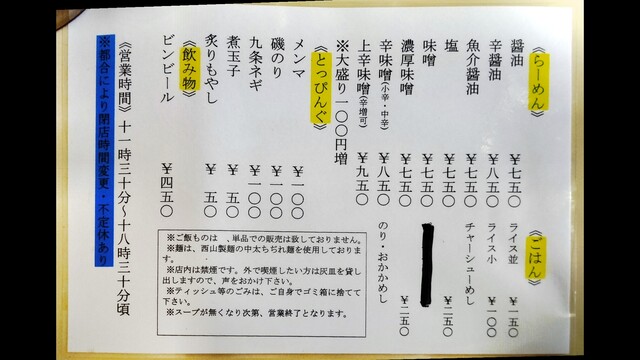 《らーめん》
醤油 ￥七五〇
辛醤油 ￥八五〇
魚介醤油 ￥七五〇
塩 ￥七五〇
味噌 ￥七五〇
濃厚味噌 ￥七五〇
辛味噌(小辛・中辛) ￥八五〇
上辛味噌(辛増可) ￥九五〇
※大盛り一〇〇円増
《とっぴんぐ》
メンマ ￥一〇〇
磯のり ￥一〇〇
九条ネギ ￥一〇〇
煮玉子 ￥五〇
炙りもやし ￥五〇
《飲み物》
ビンビール ￥四五〇
《ごはん》
ライス並 ￥一五〇
ライス小 ￥一〇〇
チャーシューめし ￥二五〇
のり・おかかめし ￥二五〇
※ご飯ものは 、単品での販売は致しておりません。
※麺は、西山製麺の中太ちぢれ麺を使用しておりま
す。
※店内は禁煙です。外で喫煙したい方は灰皿を貸し
出しますので、声をおかけ下さい。
※ティッシュ等のごみは、ご自身でゴミ箱に捨てて
下さい。
※スープが無くなり次第、営業終了となります。
《営業時間》 十一時三十分～十八時三十分頃
※都合により閉店時間変更・不定休あり